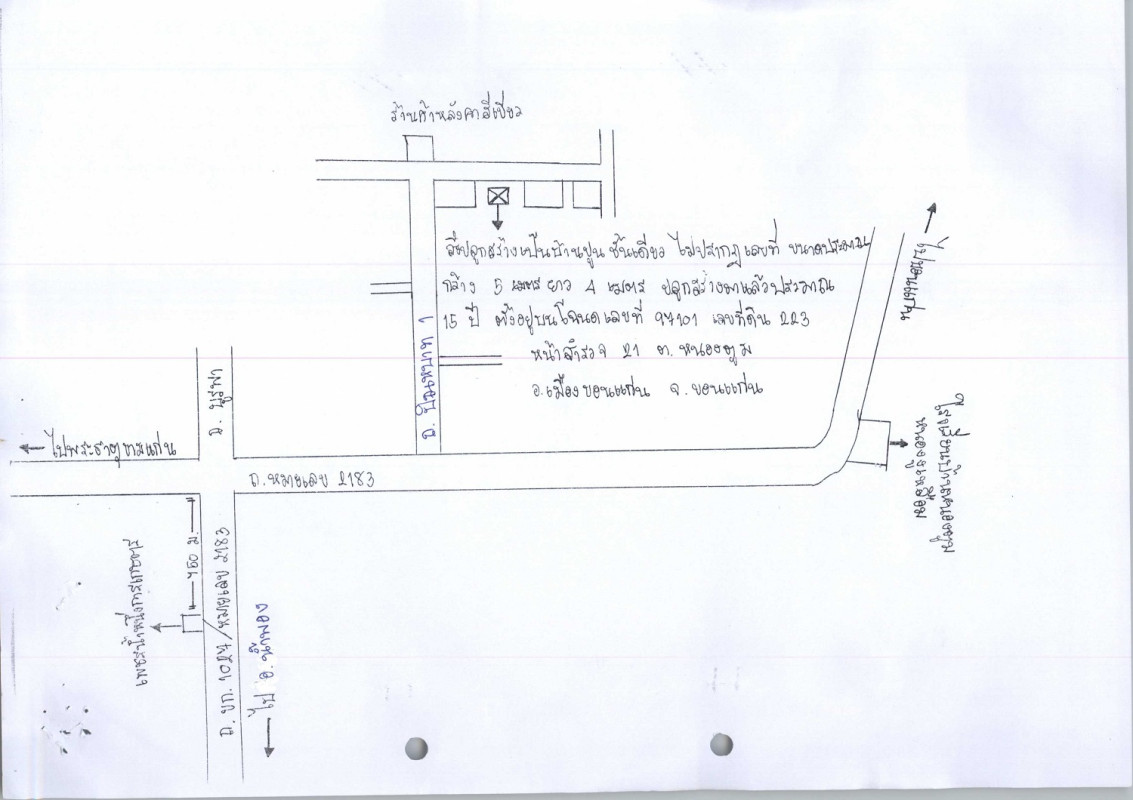 ร้านค้าหลังคาสีเขียว
สิ่งปลูกสร้างเป็นบ้านปูน ชั้นเดียว ไม่ปรากฏเลขที่ ขนาดประมาณ
กว้าง 5 เมตร ยาว 4 เมตร ปลูกสร้างมาแล้วประมาณ
15 ปี ตั้งอยู่บนโฉนดเลขที่ 97101 เลขที่ดิน 223
หน้าสำรวจ 21 ต. หนองตูม
อ.เมืองขอนแก่น จ. ขอนแก่น
ไปขอนแก่น
ถ. ปิ่นเหบาท 1
ถ. บูรพา
ไปพระธาตุขามแก่น
ถ.หมายเลข 2183
หนองตูม
750 ม.
ถ. ขก. 1027/หมายเลข 2183
ไป อ. น้ำพอง